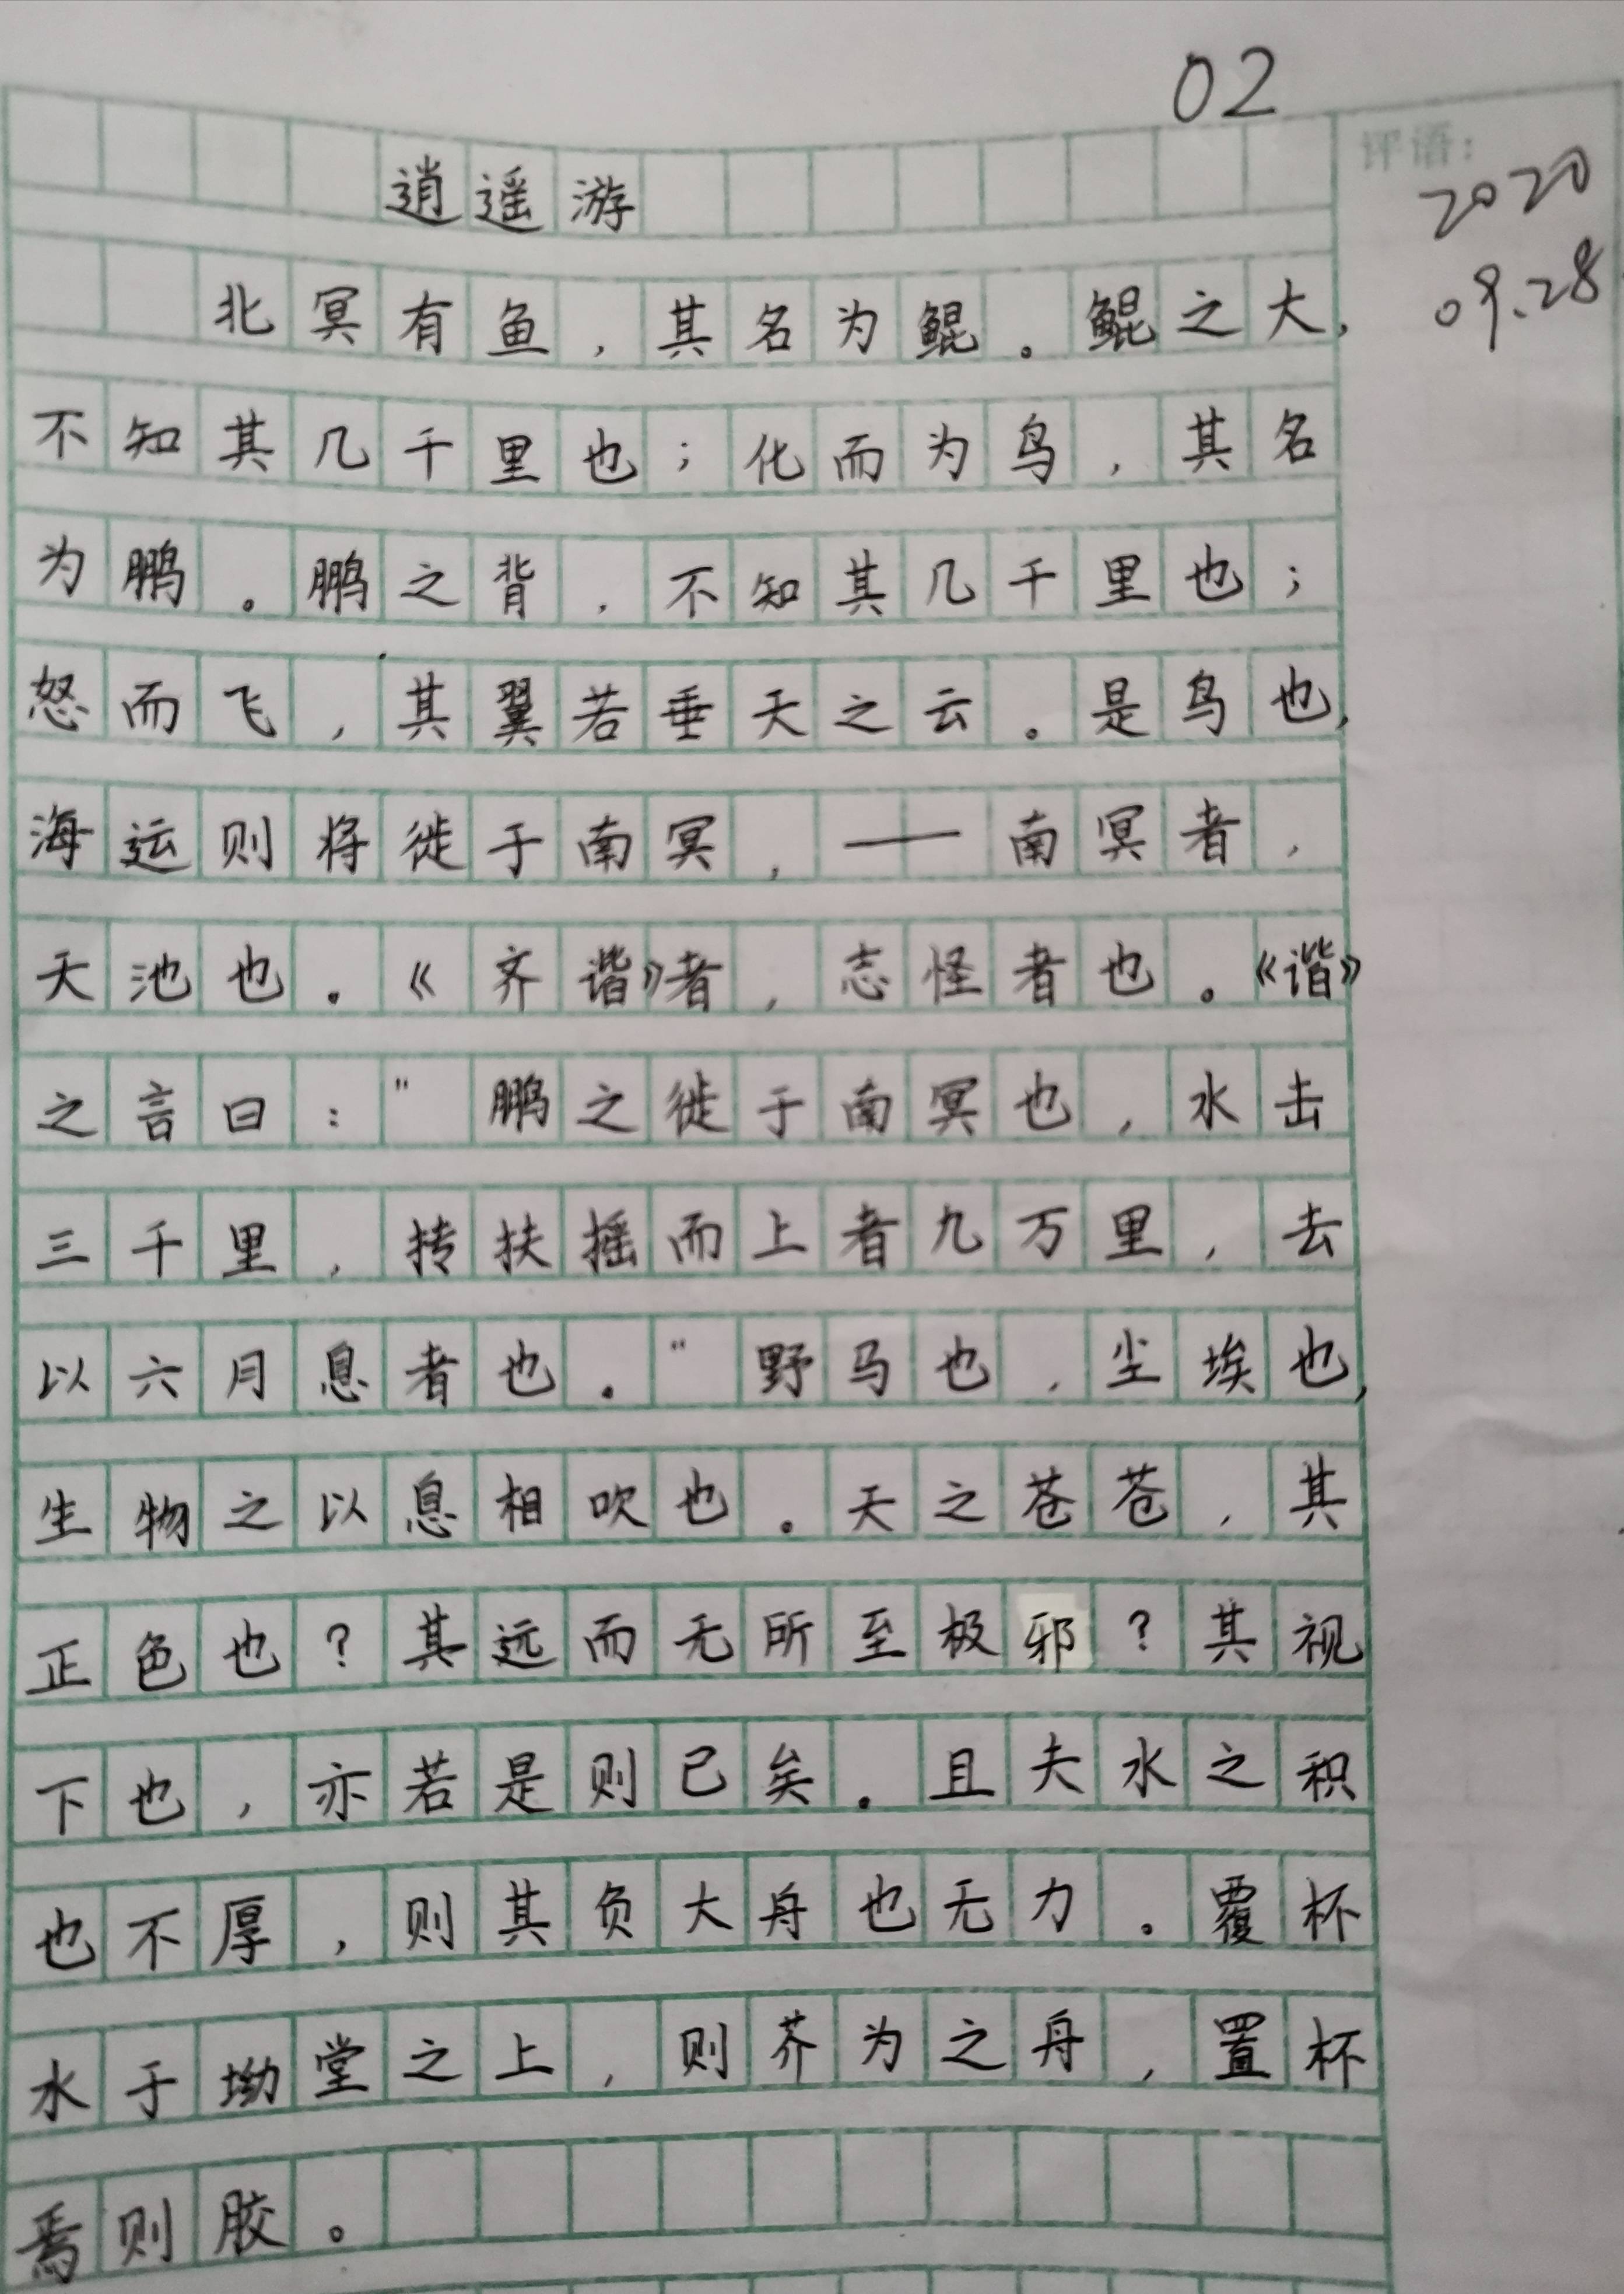 02
评语：
2020
09.28
逍遥游
北冥有鱼，其名为鲲。鲲之大，
不知其几千里也；化而为鸟，其名
为鹏。鹏之背，不知其几千里也；
怒而飞，其翼若垂天之云。是鸟也，
海运则将徙于南冥，——南冥者，
天池也。《齐谐》者，志怪者也。《谐》
之言曰："鹏之徙于南冥也，水击
三千里，抟扶摇而上者九万里，去
以六月息者也。"野马也，尘埃也，
生物之以息相吹也。天之苍苍，其
正色也？其远而无所至极邪？其视
下也，亦若是则已矣。且夫水之积
也不厚，则其负大舟也无力。覆杯
水于坳堂之上，则芥为之舟，置杯
焉则胶。